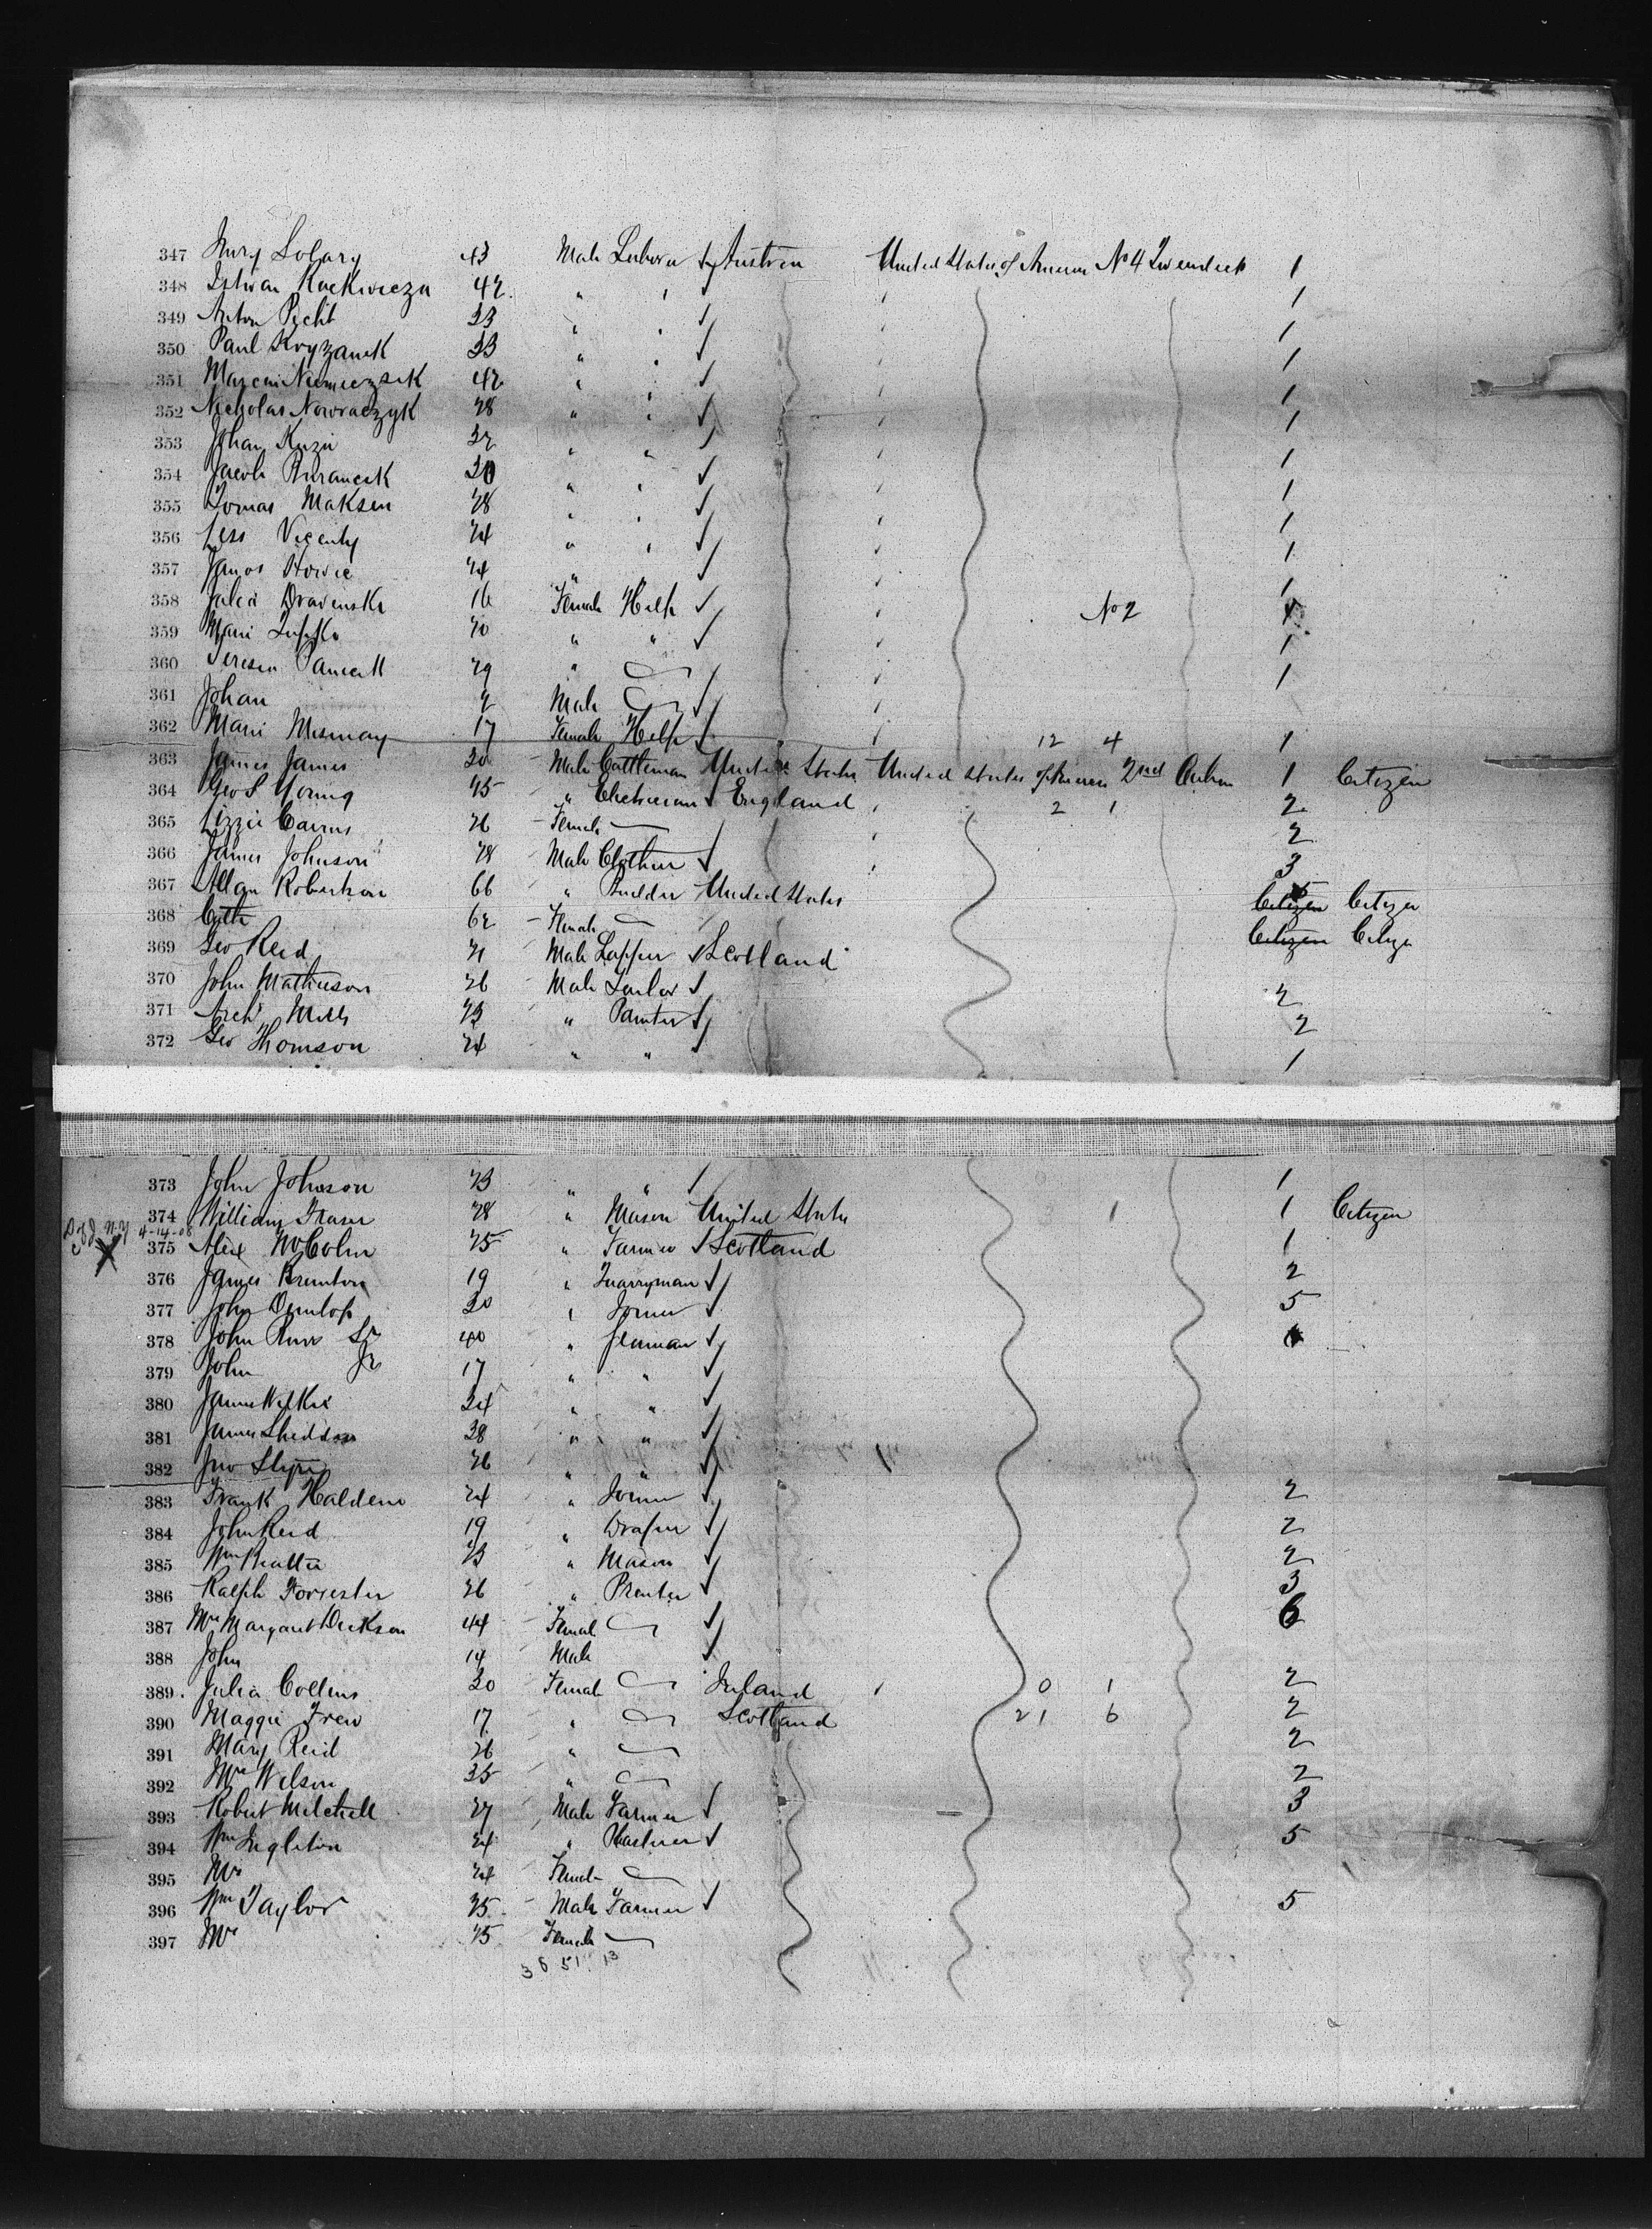 347 Jury Solary 43 Male Labora Austria United States of America No 4 Tweendeck 1
348 Istvan 42 " 1
349 Anton Pecht 33 " 1
350 Paul Kryzanek 33 " 1
351 42 " 1
352 Nicholas Nowraczyk 28 " 1
353 Johan Kuzir 32 " " 1
354 Jacob 30 " 1
355 Tomas Maksen 28 " 1
356 Vicenty 24 " 1
357 Janos 24 " 1
358 Julia 16 Female Help No 2
359 Mari 20 " " 1
360 29 " 1
361 Johan 2 Male
362 Mari 17 Female Help 12 4 1
363 James James 30 Male Cattleman United States United States of America 2nd Cabin 1 Citizen
364 Geo S Young 45 " Electrician England 2 1 2
365 Lizzie Cairns 26 Female 2
366 James Johnson 28 Male Clothier 3
367 Allan Robertson 66 " Builder United States Citizen Citizen
368 Cath 62 Female Citizen Citizen
369 Geo Reid 21 Male Scotland
370 John Mathieson 26 Male Tailor 2
371 Arch Mills 23 " Painter 2
372 Geo Thomson 24 " " 1
373 John Johnson 23 " " 1
374 William Fraser 28 " Mason United States 1 1 Citizen
N.Y 4-14-08
375 Alex McColm 25 " Farmer Scotland 1
376 James Brunton 19 " Quarryman 2
377 John Dunlop 30 " Joiner 5
378 John Sr 40 " Seaman
379 John Jr 17 " "
380 James Wilkie 34 " "
381 James Sheddon 38 " "
382 Jno 26 " "
383 Frank Haldene 24 " Joiner 2
384 John Reid 19 " Draper 2
385 Wm Beattie 23 " Mason 2
386 Ralph Forrester 26 " Printer 3
387 Mrs Margaret Dickson 44 Female 6
388 John 14 Male
389 Julia Collins 30 Female Ireland 0 1 2
390 Maggie Frew 17 " Scotland 21 6 2
391 Mary Reid 26 " 2
392 Mrs Wilson 35 " 2
393 Robert Mitchell 27 Male Farmer 3
394 Wm Ingleton 24 " Plasterer 5
395 Mrs 24 Female
396 Wm Taylor 25 Male Farmer 5
397 Mrs 25 Female
36 51 13